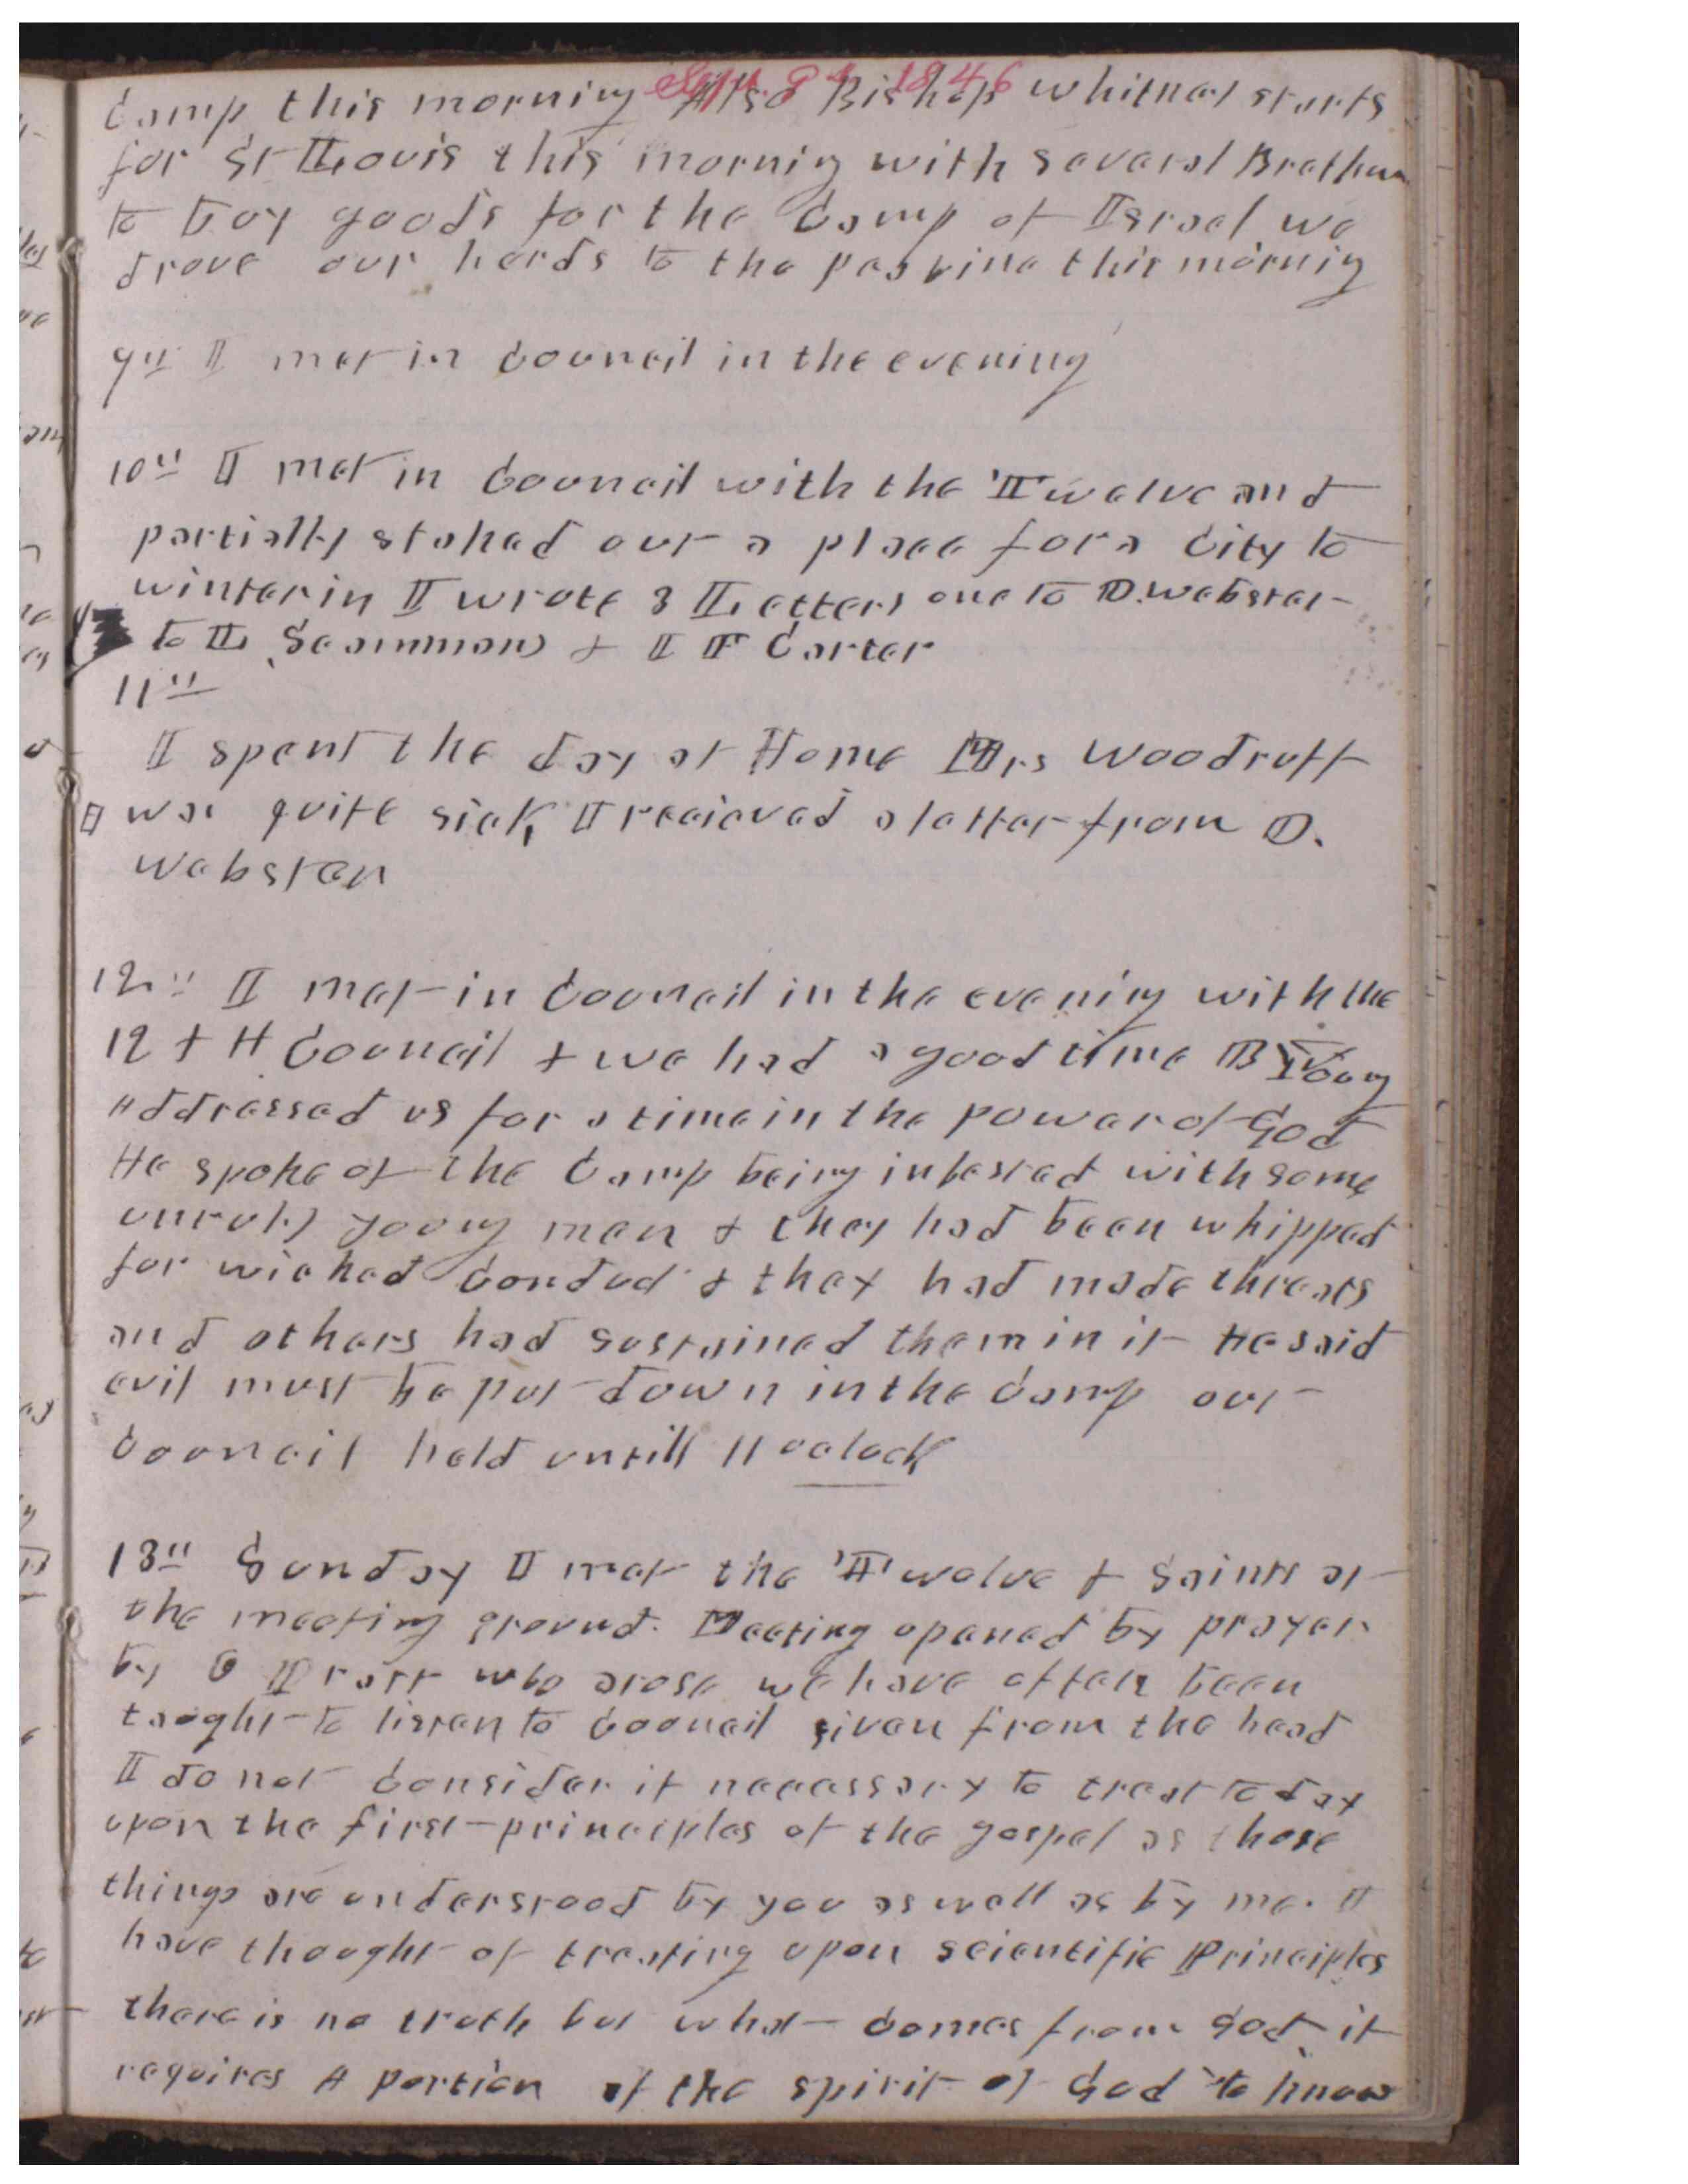 Sept. 8th 1846
Camp this morning Also Bishop Whitney starts
for St Louis this morning with several Brethren
to buy goods for the Camp of Israel we
drove our herds to the peavine this morning
9th I met in Council in the evening
10th I met in Council with the Twelve and
partially staked out a place for a City to
winter in I wrote 3 Letters one to D. Webster
to L Scammons & I F Carter
11th
I spent the day at Home Mrs Woodruff
was quite sick, I recieved a letter from D.
Webster
12th I met in Council in the evening with the
12 & H Council & we had a good time B Young
Addressed us for a time in the power of God
He spoke of the Camp being infested with some
unruly young men & they had been whipped
for wicked Conduct & they had made threats
and others had sustained them in it He said
evil must be put down in the Camp our
Council held untill 11 oclock
13th Sunday I met the Twelve & Saints at
the meeting ground. Meeting opened by prayer
by O Pratt who arose we have often been
taught to listen to Council given from the head
I do not Consider it necessary to treat to day
upon the first principles of the gospel as those
things are understood by you as well as by me. I
have thought of treating upon scientific Principles
there is no truth but what Comes from God it
requires A portion of the spirit of God to know